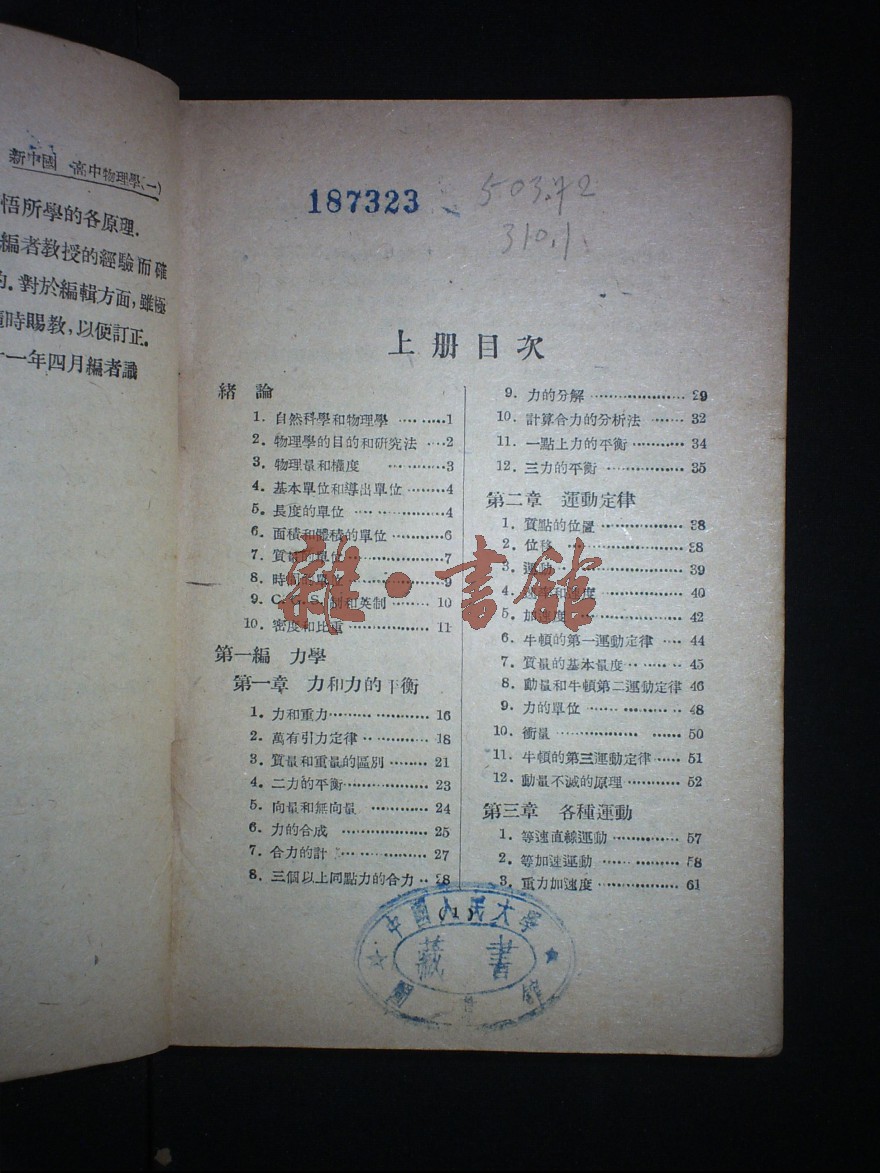 新中國 高中物理學(一)
悟所學的各原理.
編者教授的經驗而確
的.對於編輯方面,雖極
時賜教,以便訂正.
十一年四月編者識
187323
503.72
310.1
上册目次
緒論
1. 自然科學和物理學 ………1
2. 物理學的目的和研究法 …2
3. 物理量和權度 ………3
4. 基本單位和導出單位 ………4
5. 長度的單位 ………4
6. 面積和體積的單位 ………6
7. 質量的單位 ………7
8. 時間的單位 ………9
9. C. G. S. 制和英制 ……… 10
10. 密度和比重 ……… 11
第一編 力學
第一章 力和力的平衡
1. 力和重力 ……… 16
2. 萬有引力定律 ……… 18
3. 質量和重量的區別 ……… 21
4. 二力的平衡 ……… 23
5. 向量和無向量 ……… 24
6. 力的合成 ……… 25
7. 合力的計 ……… 27
8. 三個以上同點力的合力 ‥ 28
9. 力的分解 ……… 29
10. 計算合力的分析法 ……… 32
11. 一點上力的平衡 ……… 34
12. 三力的平衡 ……… 35
第二章 運動定律
1. 質點的位置 ……… 38
2. 位移 ……… 38
3. 運動 ……… 39
4. 速率和速度 ……… 40
5. 加速度 ……… 42
6. 牛頓的第一運動定律 … 44
7. 質量的基本量度 ……… 45
8. 動量和牛頓第二運動定律 46
9. 力的單位 ……… 48
10. 衝量 ……… 50
11. 牛頓的第三運動定律 …… 51
12. 動量不滅的原理 ……… 52
第三章 各種運動
1. 等速直線運動 ……… 57
2. 等加速運動 ……… 58
3. 重力加速度 ……… 61
(1)
中國人民大學
藏書
圖書館
雜·書館